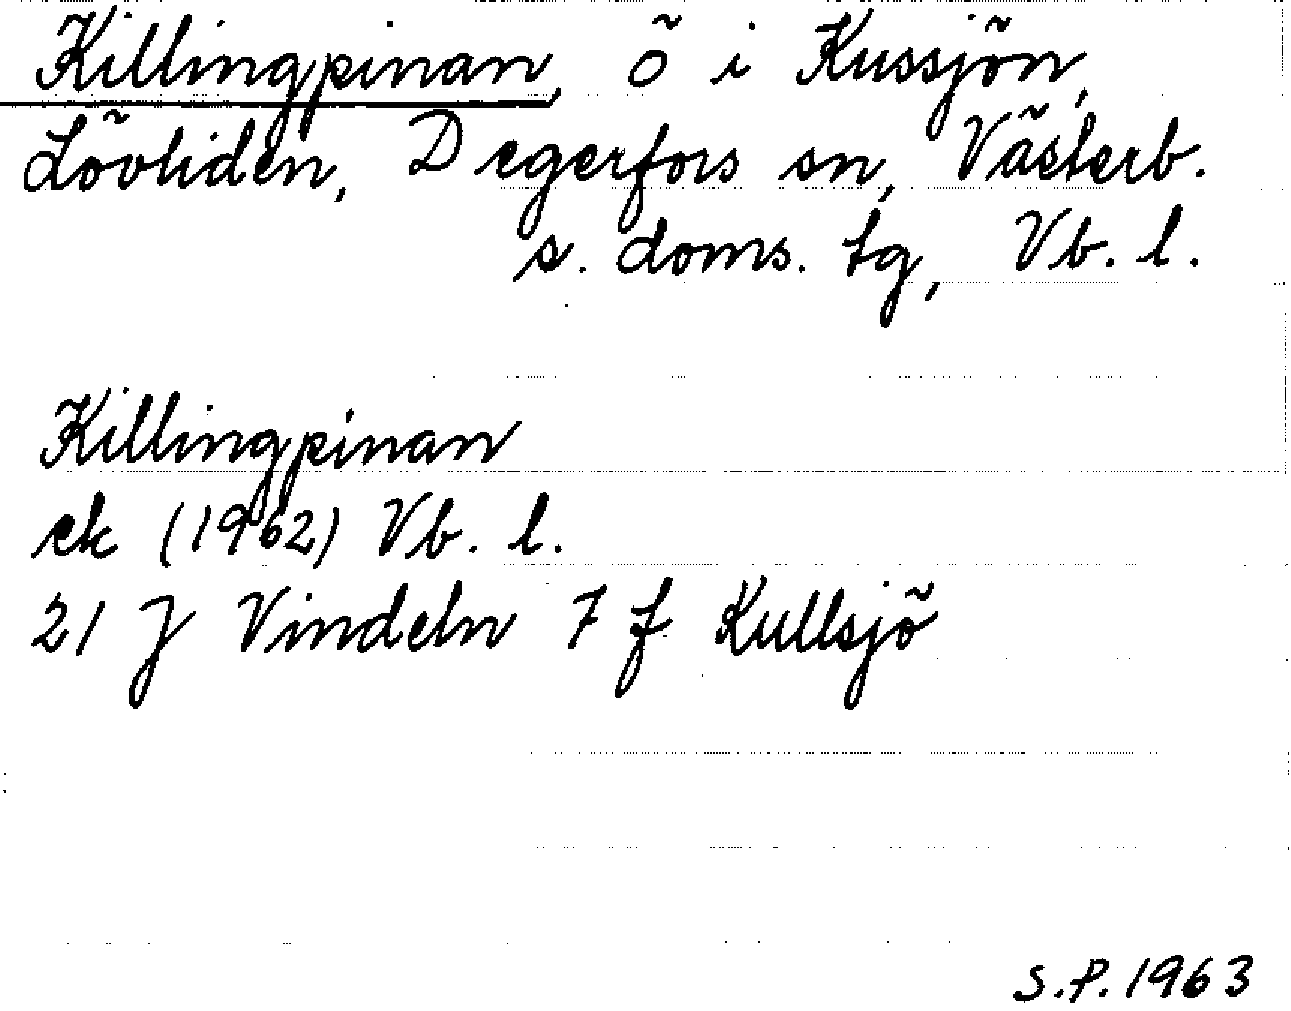 Killingpinan, ö i Kussjön,
Lövliden, Degerfors sn, Västerb.
s. doms. tg, Vb. l.
Killingpinan
ek (1962) Vb. l.
21 J Vindeln 7 f Kullsjö
S.P. 1963